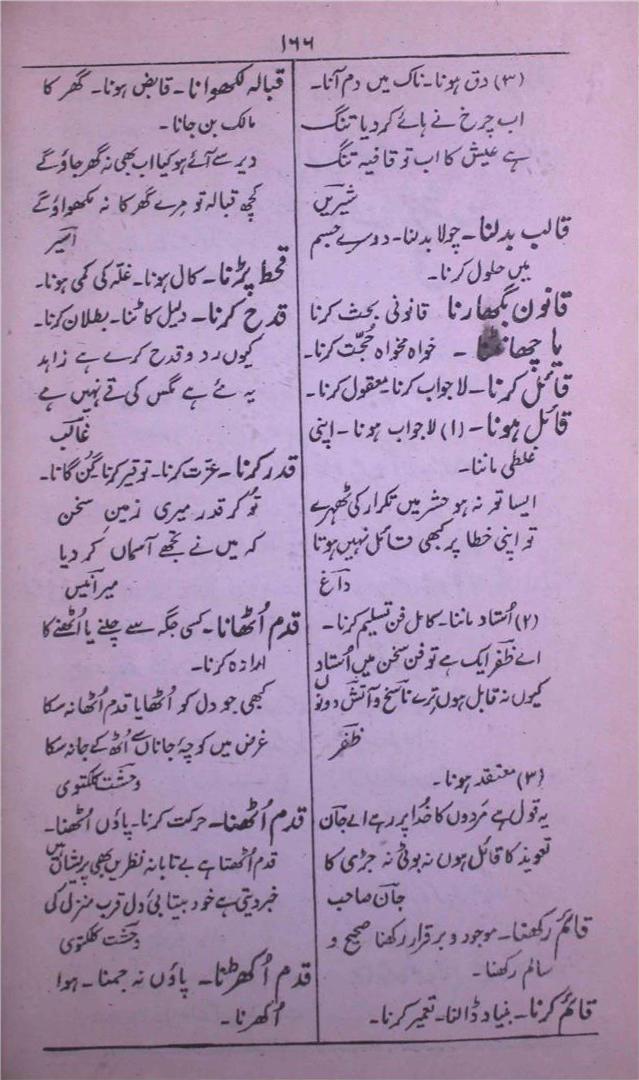 ۱۶۶
(۳) دق ہونا۔ ناک میں دم آنا۔
اب چرخ نے ہائے کر دیا تنگ
ہے عیش کا اب تو قافیہ تنگ
شیریں
قالب بدلنا۔ چولا بدلنا۔ دوسرے جسم
میں حلول کرنا۔
قانون بگھارنا قانونی بحث کرنا
یا چھانٹنا ۔ خواہ مخواہ حُجّت کرنا۔
قائل کرنا۔ لا جواب کرنا۔ معقول کرنا۔
قائل ہونا۔ (۱) لاجواب ہونا۔ اپنی
غلطی ماننا۔
ایسا تو نہ ہو حشر میں تکرار کی ٹھہرے
تو اپنی خطا پر کبھی قائل نہیں ہوتا
داغ
(۲) اُستاد ماننا۔ کامل فن تسلیم کرنا۔
اے ظفر ایک ہے تو فن سخن میں اُستاد
کیوں نہ قابل ہوں ترے ناسخ و آتش دونوں
ظفر
(۳) معتقد ہونا۔
یہ قول ہے مَردوں کا خُدا پر رہے اے جان
تعویذ کا قائل ہوں نہ بوٹی نہ جڑی کا
جان صاحب
قائم رکھنا۔ موجود و برقرار رکھنا صحیح و
سالم رکھنا۔
قائم کرنا۔ بنیاد ڈالنا۔ تعمیر کرنا۔
قبالہ لکھوانا۔ قابض ہونا۔ گھر کا
مالک بن جانا۔
دیر سے آئے ہو کیا اب بھی نہ گھر جاؤ گے
کچھ قبالہ تو مرے گھر کا نہ لکھواؤ گے
اسیر
قحط پڑنا۔ کال ہونا۔ غلّہ کی کمی ہونا۔
قدح کرنا۔ دلیل کاٹنا۔ بطلان کرنا۔
کیوں رد و قدح کرے ہے زاہد
یہ مئے ہے مگس کی قے نہیں ہے
غالب
قدر کرنا۔ عزّت کرنا۔ توقیر کرنا گُن گانا۔
تُو کر قدر میری زمین سخن
کہ میں نے تجھے آسماں کر دیا
میر انیس
قدم اُٹھانا۔ کسی جگہ سے چلنے یا اُٹھنے کا
ارادہ کرنا۔
کبھی جو دل کو اُٹھایا قدم اُٹھا نہ سکا
غرض میں کوچۂ جاناں سے اُٹھ کے جا نہ سکا
وحشت کلکتوی
قدم اُٹھنا۔ حرکت کرنا۔ پاؤں اُٹھنا۔
قدم اُٹھتا ہے بے تابانہ نظریں بھی پریشاں ہیں
خبر دیتی ہے خود بیتابیٔ دل قرب منزل کی
وحشت کلکتوی
قدم اُکھڑنا۔ پاؤں نہ جمنا۔ ہوا
اُکھڑنا۔